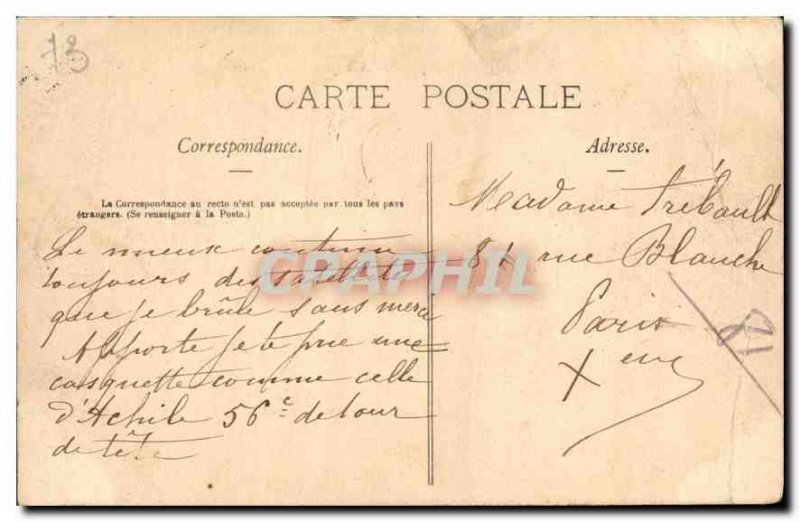 73
CARTE POSTALE
Correspondance.
Adresse.
La Correspondance au recto n'est pas acceptée par tous les pays
étrangers. (Se renseigner à la Poste.)
Le mieux continue
toujours
que je brûle sans merci
Apporte je te prie une
casquette comme celle
d'Achile 56c. de tour
de tête
Madame Trébault
rue Blanche
Paris
X eme
CPAPHIL